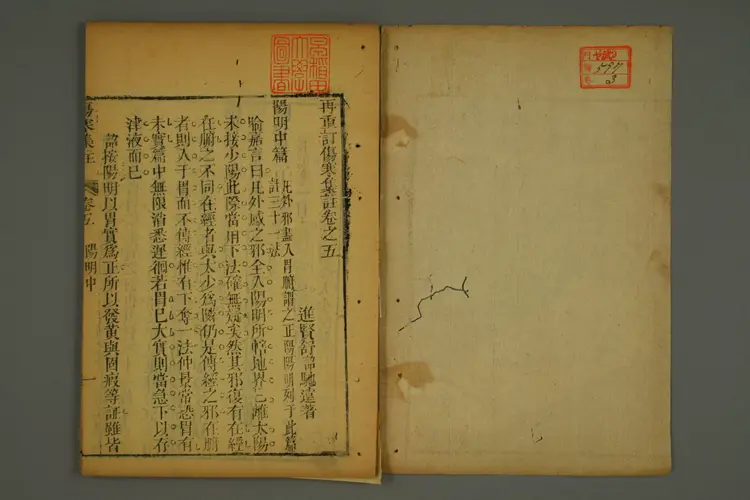 再重訂傷寒集註卷之五
進賢舒詔馳遠著
陽明中篇
凡外邪盡入胃腑謂之正陽陽明列于此篇
計三十一法
喻嘉言曰凡外感之邪全入陽明所轄地界已離太陽
未接少陽此際當用下法確無疑矣然其邪復有在經
在腑之不同在經者與太少爲隣仍是傳經之邪在腑
者則入于胃而不傳經惟有下奪一法仲景常恐胃有
未實篇中無限消悉遲徊若胃已大實則當急下以存
津液而已
詔按陽明以胃實爲正所以發黃與固瘕等証雖皆
傷寒集註
卷五
陽明中
一
早稻田
大學
圖書